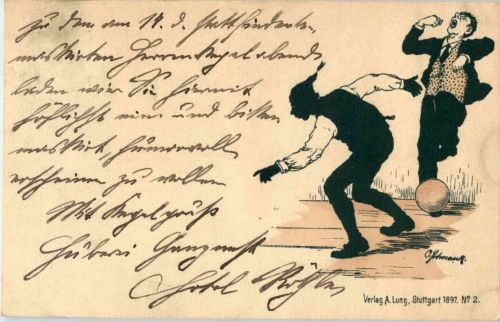 zu dem am 14. d. stattfindenden
maskirten Herrenkegelabend
laden wir Sie hiermit
höflichst ein und bitten
maskirt, humorvoll
erscheinen zu wollen
Mit Kegelgruß
Hotel
Verlag A. Lung, Stuttgart 1897. No 2.